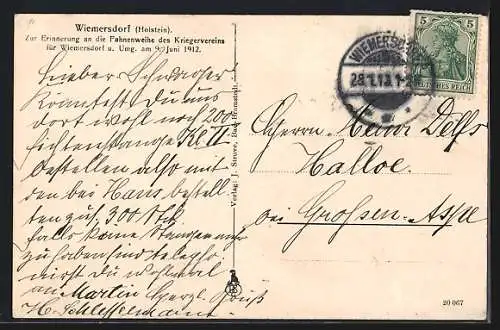 Wiemersdorf (Holstein).
Zur Erinnerung an die Fahnenweihe des Kriegervereins
für Wiemersdorf u. Umg. am 9. Juni 1912.
Lieber Schwager
Könntest Du uns
dort wohl noch 200
Fichtenstangen Kl. II
bestellen also mit
den bei Hans bestell
ten zus. 300 Stk
falls keine Stangen mehr
zu haben sind telepho
nirst Du wohl mal
an Martin Herzl. Gruß
H.
Verlag: J. Struve, Bad Bramstedt.
WIEMERSDORF
28.1.13
5 5
DEUTSCHES REICH
Herrn Hein Delfs
Halloe
bei Grossen-Aspe
20 067